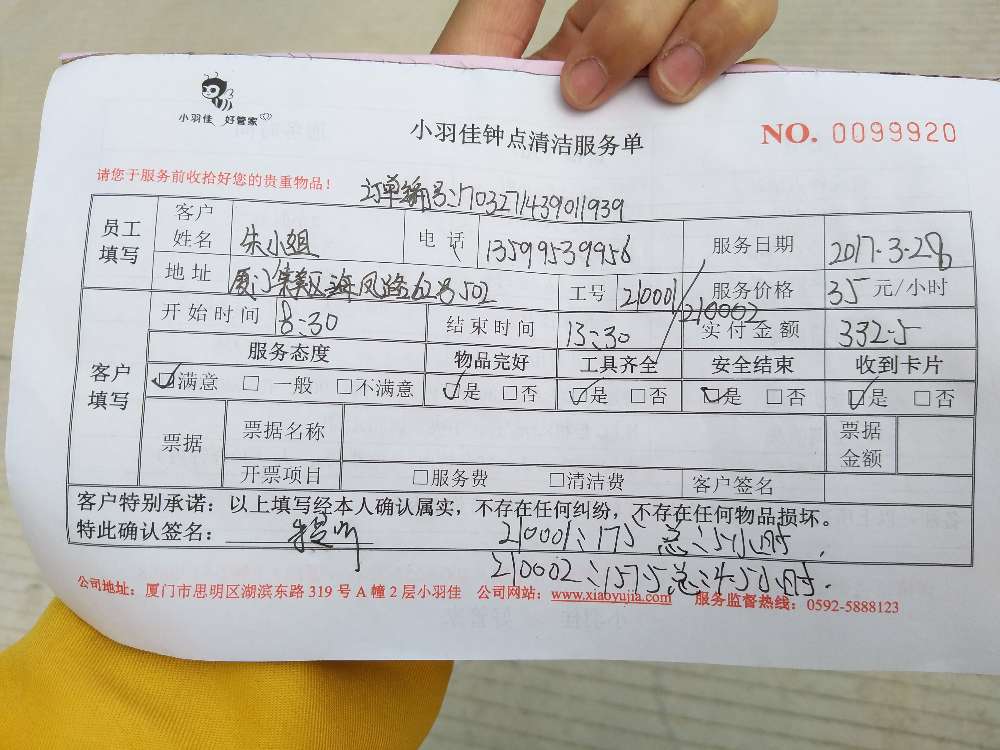 小羽佳 好管家
小羽佳钟点清洁服务单
NO. 0099920
请您于服务前收拾好您的贵重物品！
订单编号：170327143901 1939
员工填写 客户姓名 朱小姐 电话 13599539956 服务日期 2017.3.28
地址 厦门集美区海凤路62号502 工号 210001/210002 服务价格 35 元/小时
客户填写 开始时间 8:30 结束时间 13:30 实付金额 332.5
服务态度 物品完好 工具齐全 安全结束 收到卡片
☑满意 □一般 □不满意 ☑是 □否 ☑是 □否 ☑是 □否 ☑是 □否
票据 票据名称 票据金额
开票项目 □服务费 □清洁费 客户签名
客户特别承诺：以上填写经本人确认属实，不存在任何纠纷，不存在任何物品损坏。
特此确认签名：
210001：175 总：5小时．
210002：157.5 总：4.5小时．
公司地址：厦门市思明区湖滨东路 319 号 A 幢 2 层小羽佳 公司网站：www.xiaoyujia.com 服务监督热线：0592-5888123